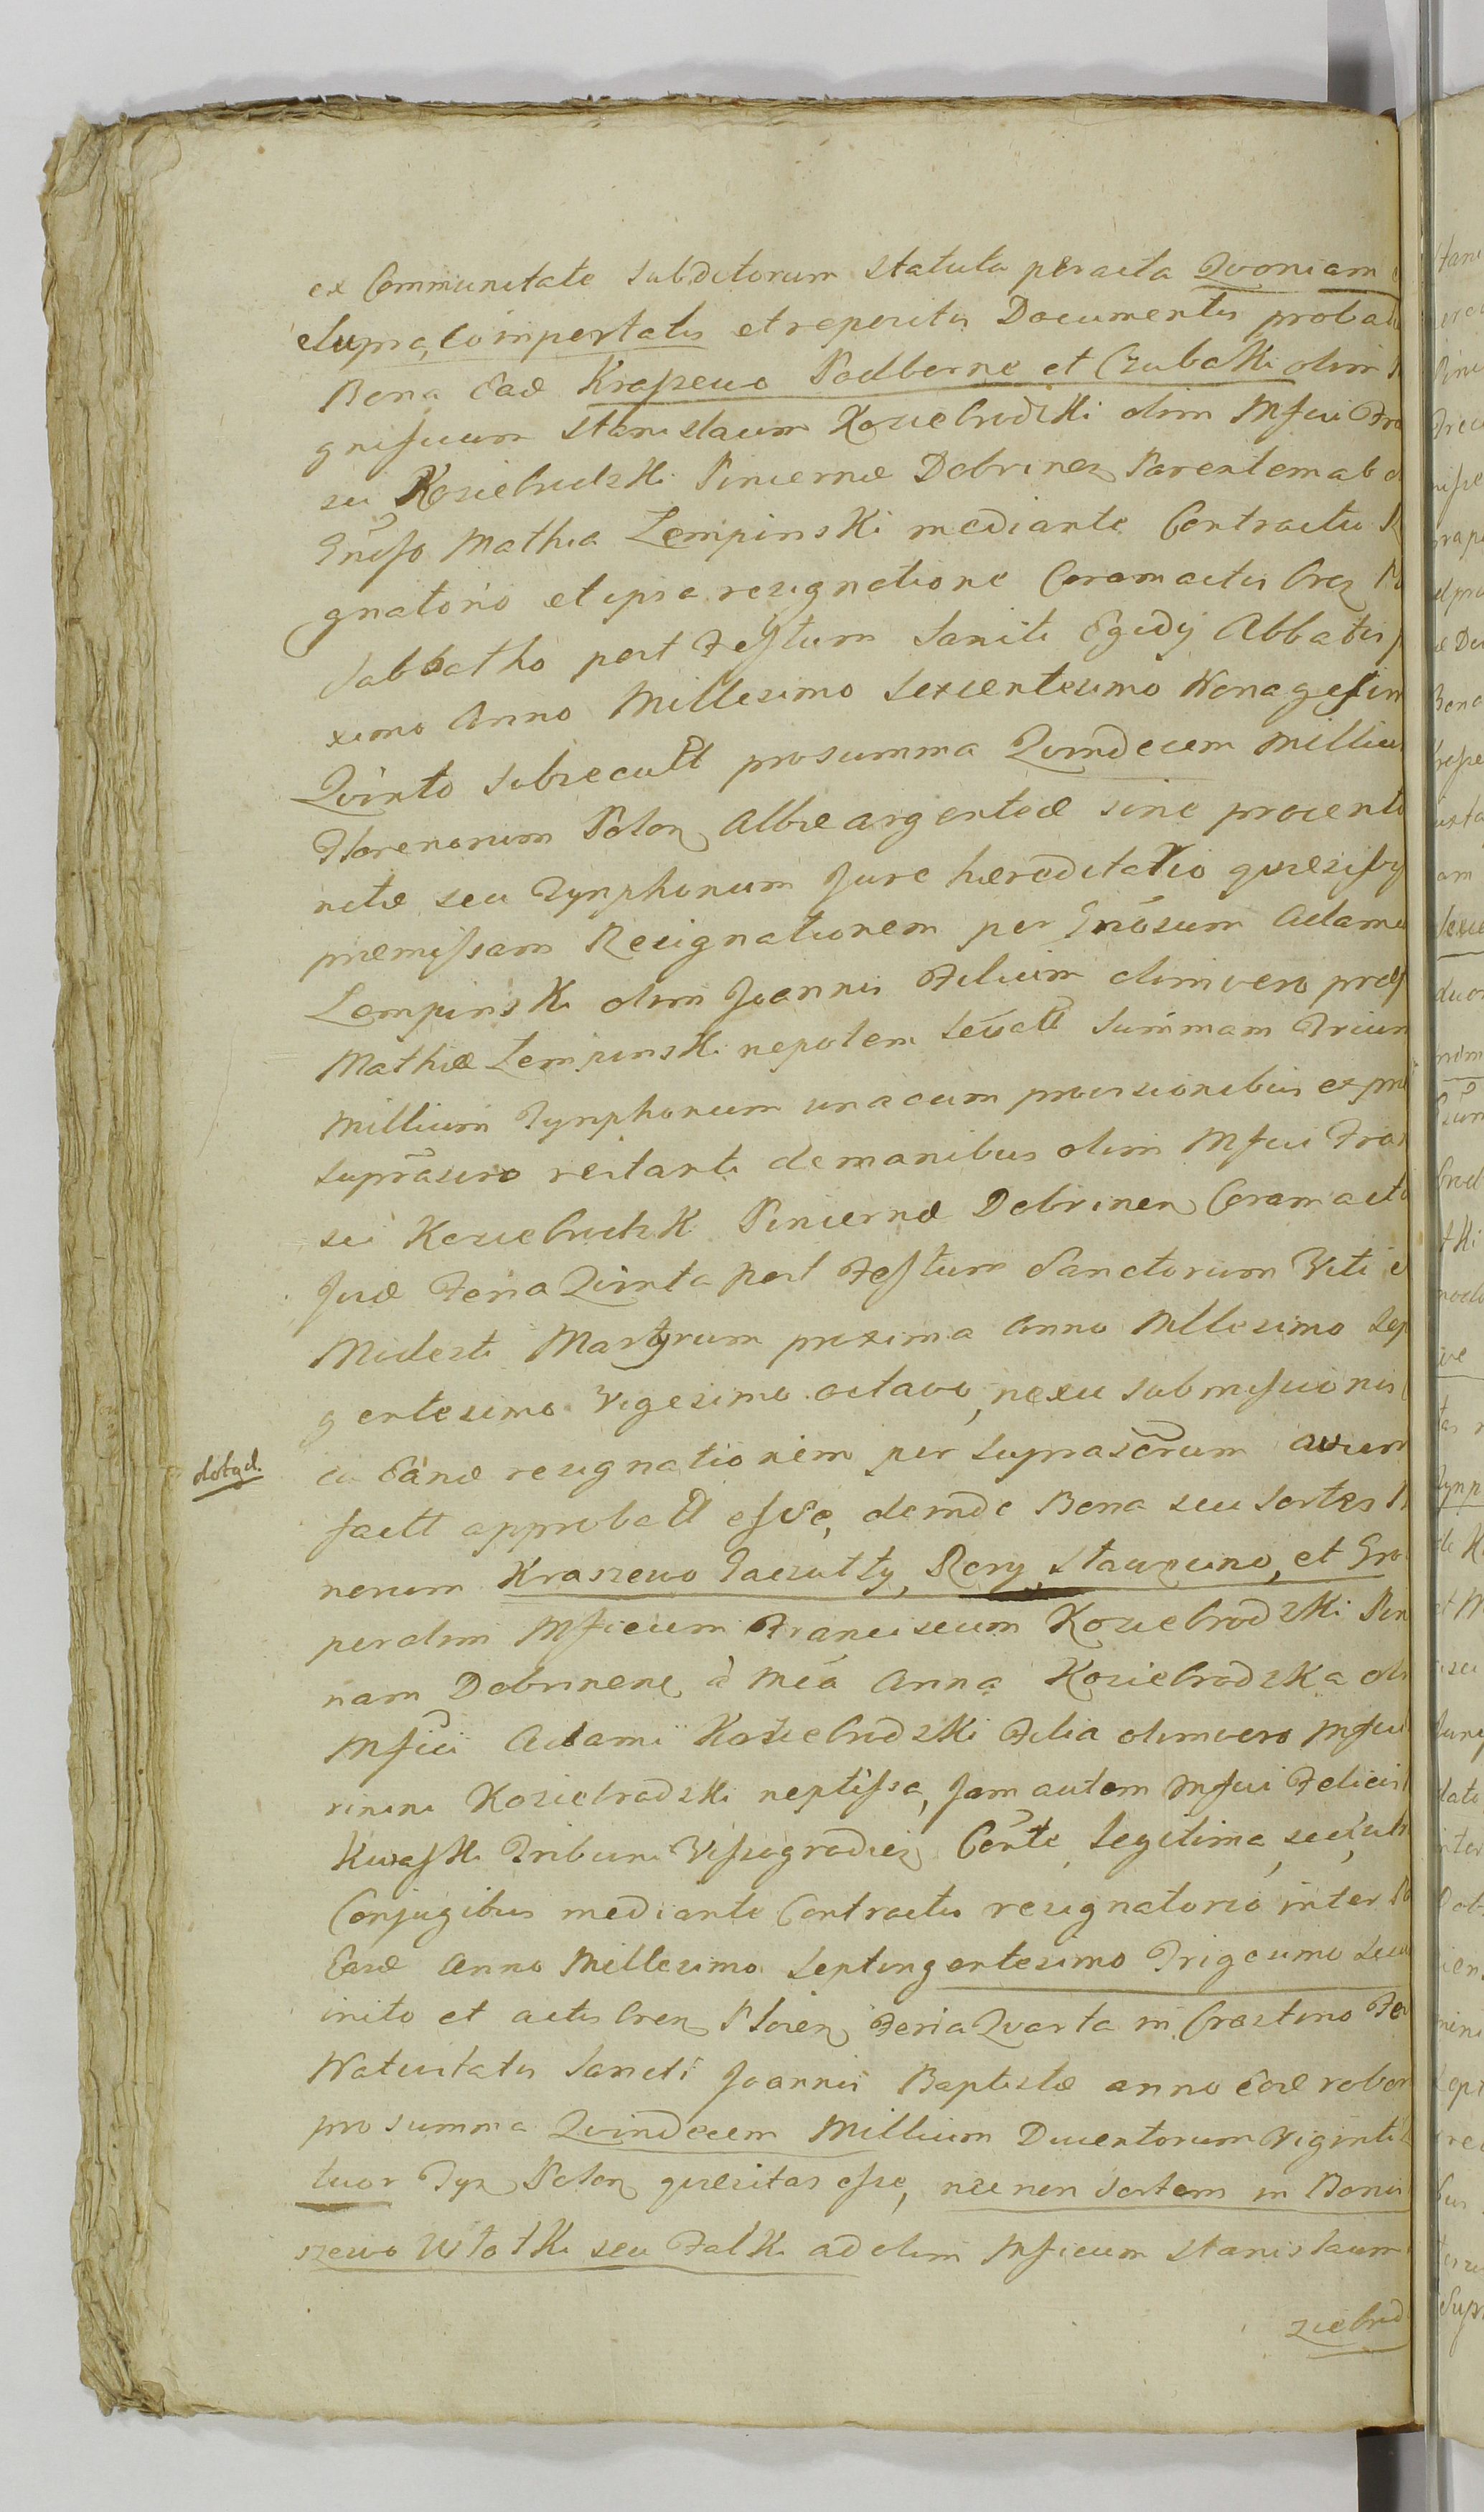 ex Communitate subditorum statuta peracta Quoniam
e supra, Comportatis et repertis Documentis probat
Bona Eadē Kraszewo Podborne et Czubaki olim
gnificum Stanislaum Koziebrodzki olim Mfici Fra
sci Koziebrodzki Pincernæ Dobrinen Parentem ab
Gnoso Mathia Lempinski mediante Contractu
gnatorio et ipsa resignatione Coram actis
Sabbatho post Festum Sancti Egidij Abbatis
ximo Anno Millesimo Sexcentesimo Nonagesim
Qvinto subsecutt pro summa Qvindecem Milliu
Florenorum Polon Albæ argenteæ sine
netæ seu Tynphonum Jure hæreditario quæsi
præmissam Resignationem per Gnosum Adamu
Lempinski olim Joannis Filium olim vero præf
Mathiæ Lempinski nepotem levatt Summam Trium
Millium Tynphonum una cum provisionibus ex
suprascro restanti de manibus olim Mfici Fran
sci Koziebrodzk Pincernæ Dobrinen Coram acti
Feria Qvinta post Festum Sanctorum Viti e
Modesti Martyrum proxima Anno Millesimo Sep
gentesimo Vigesimo octavo, nexu submissionis
Eandē resignationem per suprascrum
factt approbatt esse, deinde Bona seu Sortes
norum Kraszewo Gaczutky, Rory, Staurowo, et Gro
per olim Mficum Franciscum Koziebrodzki Pin
nam Dobrinen à Mca Anna Koziebrodzka oli
Mfici Adami Koziebrodzki Filia olim vero Mfici
Koziebrodzki neptissa, Jam autem Mfici Felicis
Kwaski Tribuni Vissogradien Conte Legitima
Conjugibus mediante Contractu resignatorio inter
Eosd Anno Millesimo Septingentesimo Trigesimo
inito et actis Plocen Feria Qvarta in Crastino Fe
Nativitatis Sancti Joannis Baptistæ anno Eodē robor
pro summa Qvindecem Millium Ducentorum Viginti
tuor Tyn Polon quæsitas esse, nec non Sortem in Bonis
szewo Wlotki seu Falki ad olim Mficum Stanislaum
ziebrod